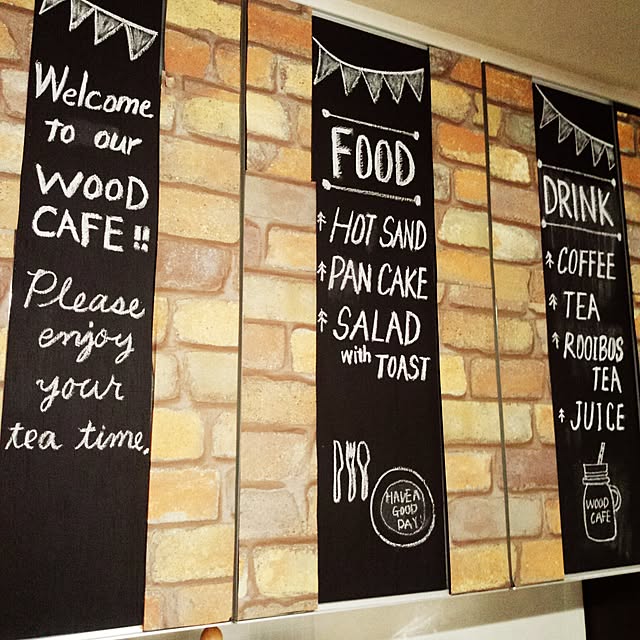 Welcome
to our
WOOD
CAFE!!
Please
enjoy
your
tea time.
FOOD
HOT SAND
PAN CAKE
SALAD
with TOAST
HAVE A
GOOD
DAY!
DRINK
COFFEE
TEA
ROOIBOS
TEA
JUICE
WOOD
CAFE